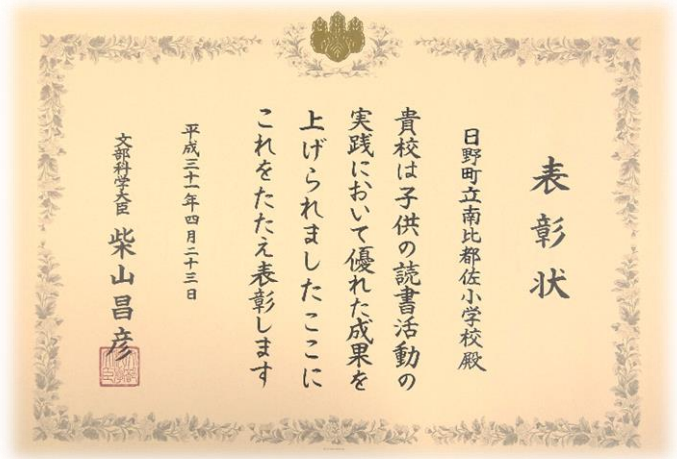 表彰状
日野町立南比都佐小学校殿
貴校は子供の読書活動の
実践において優れた成果を
上げられましたここに
これをたたえ表彰します
平成三十一年四月二十三日
文部科学大臣 柴山昌彦